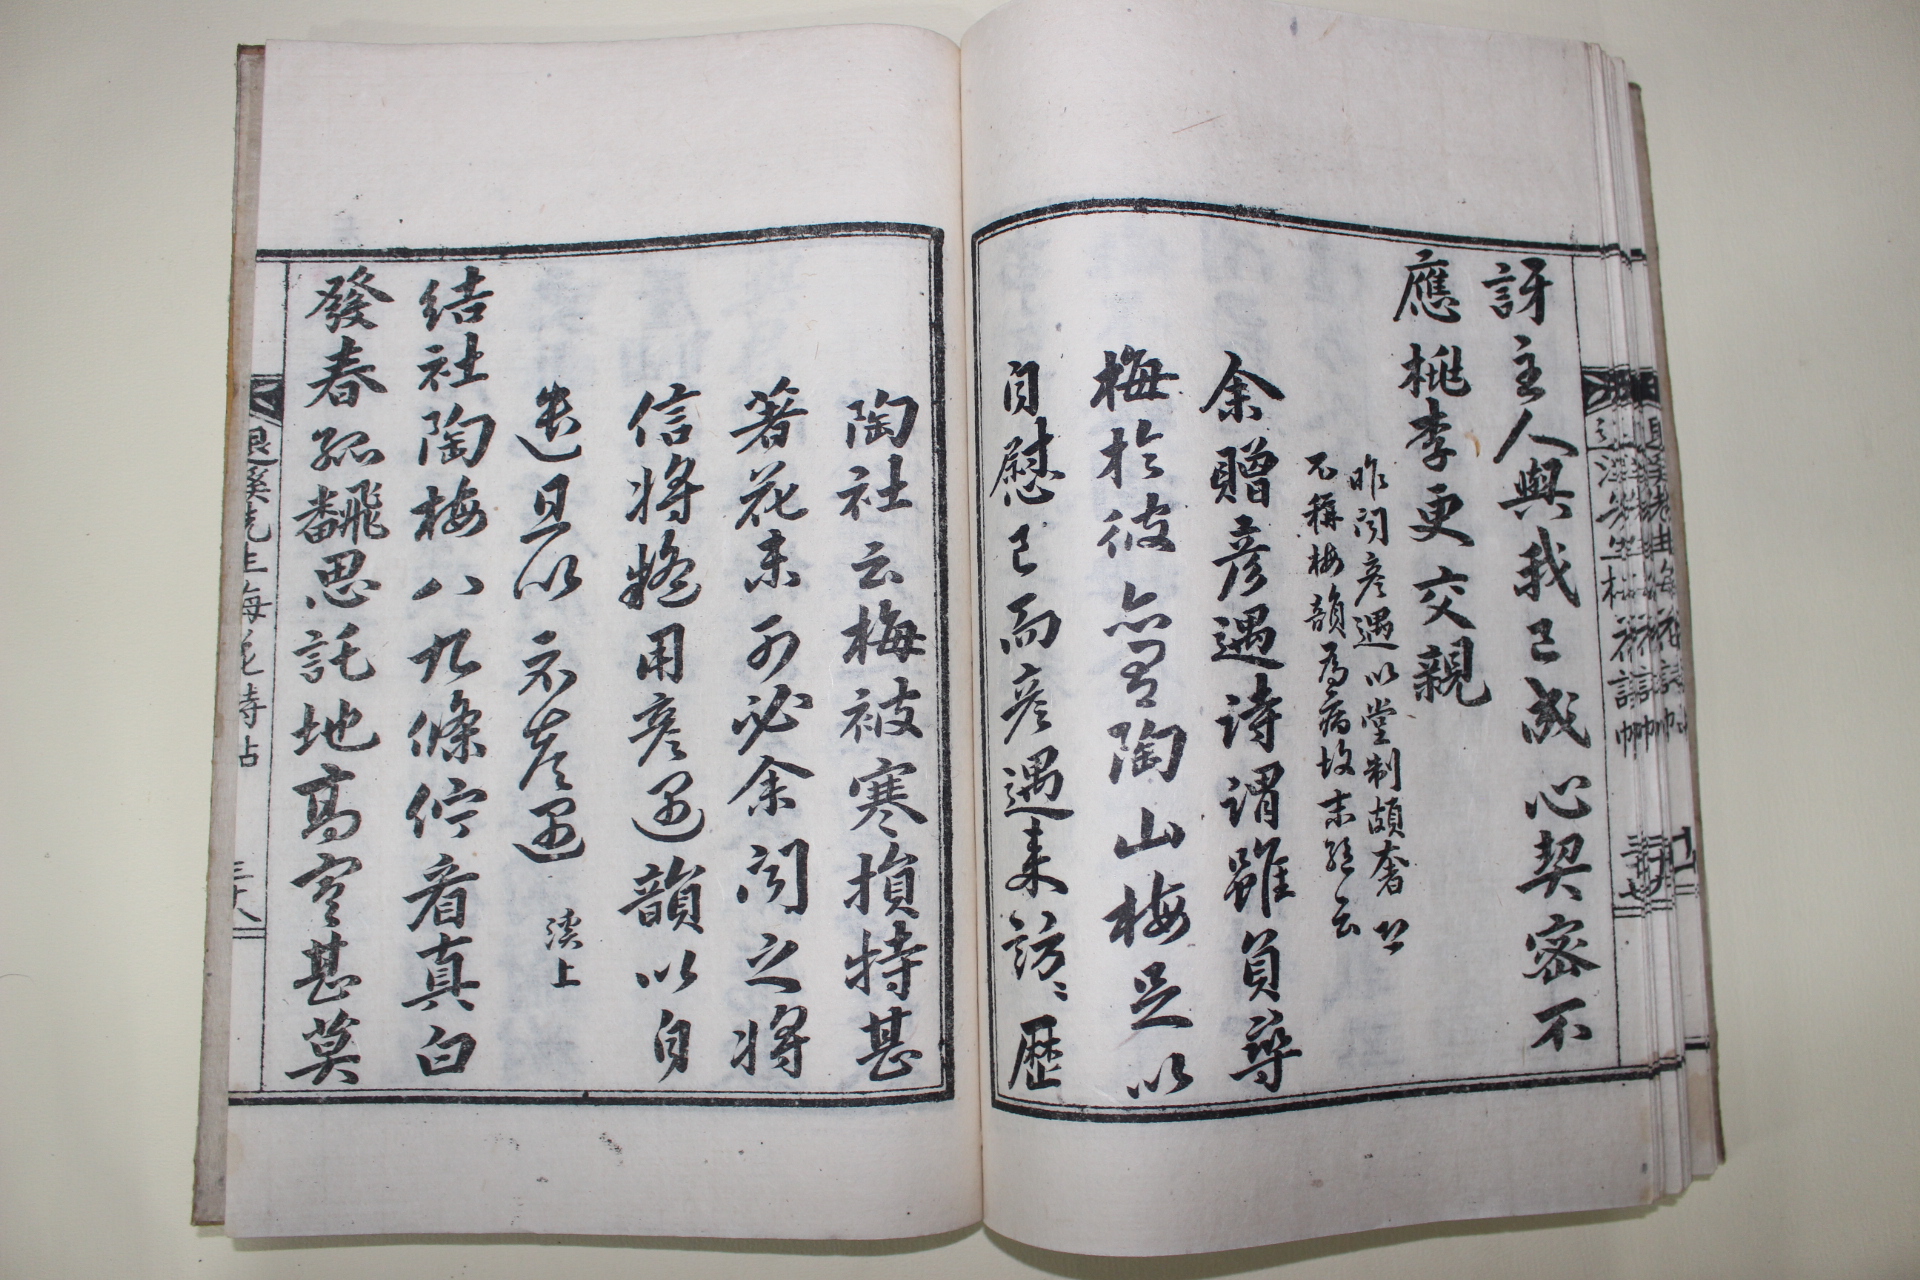 訝主人與我已成心契密不
應桃李更交親
昨聞彥遇以堂制頗奢
不稱梅韻爲病故末句云
余贈彥遇詩謂雖負尋
梅於彼亦有陶山梅足以
自慰已而彥遇來訪歷
陶社云梅被寒損特甚
著花未可必余聞之將
信將疑用彥遇韻以自
遣且以示彥遇 溪上
結社陶梅八九條佇看真白
發春孤飜思託地高寒甚莫
退溪先生梅花詩帖
三十八
三十七